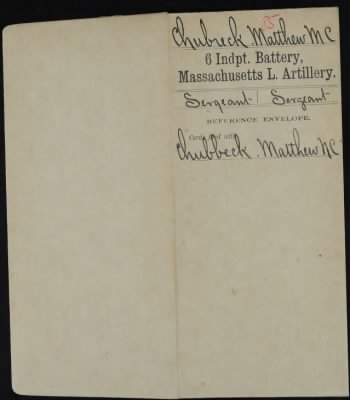 15
Chubreck Matthew M C
6 Indpt. Battery,
Massachusetts L. Artillery.
Sergeant | Sergeant
REFERENCE ENVELOPE.
Cards filed with
Chubbeck. Matthew M C